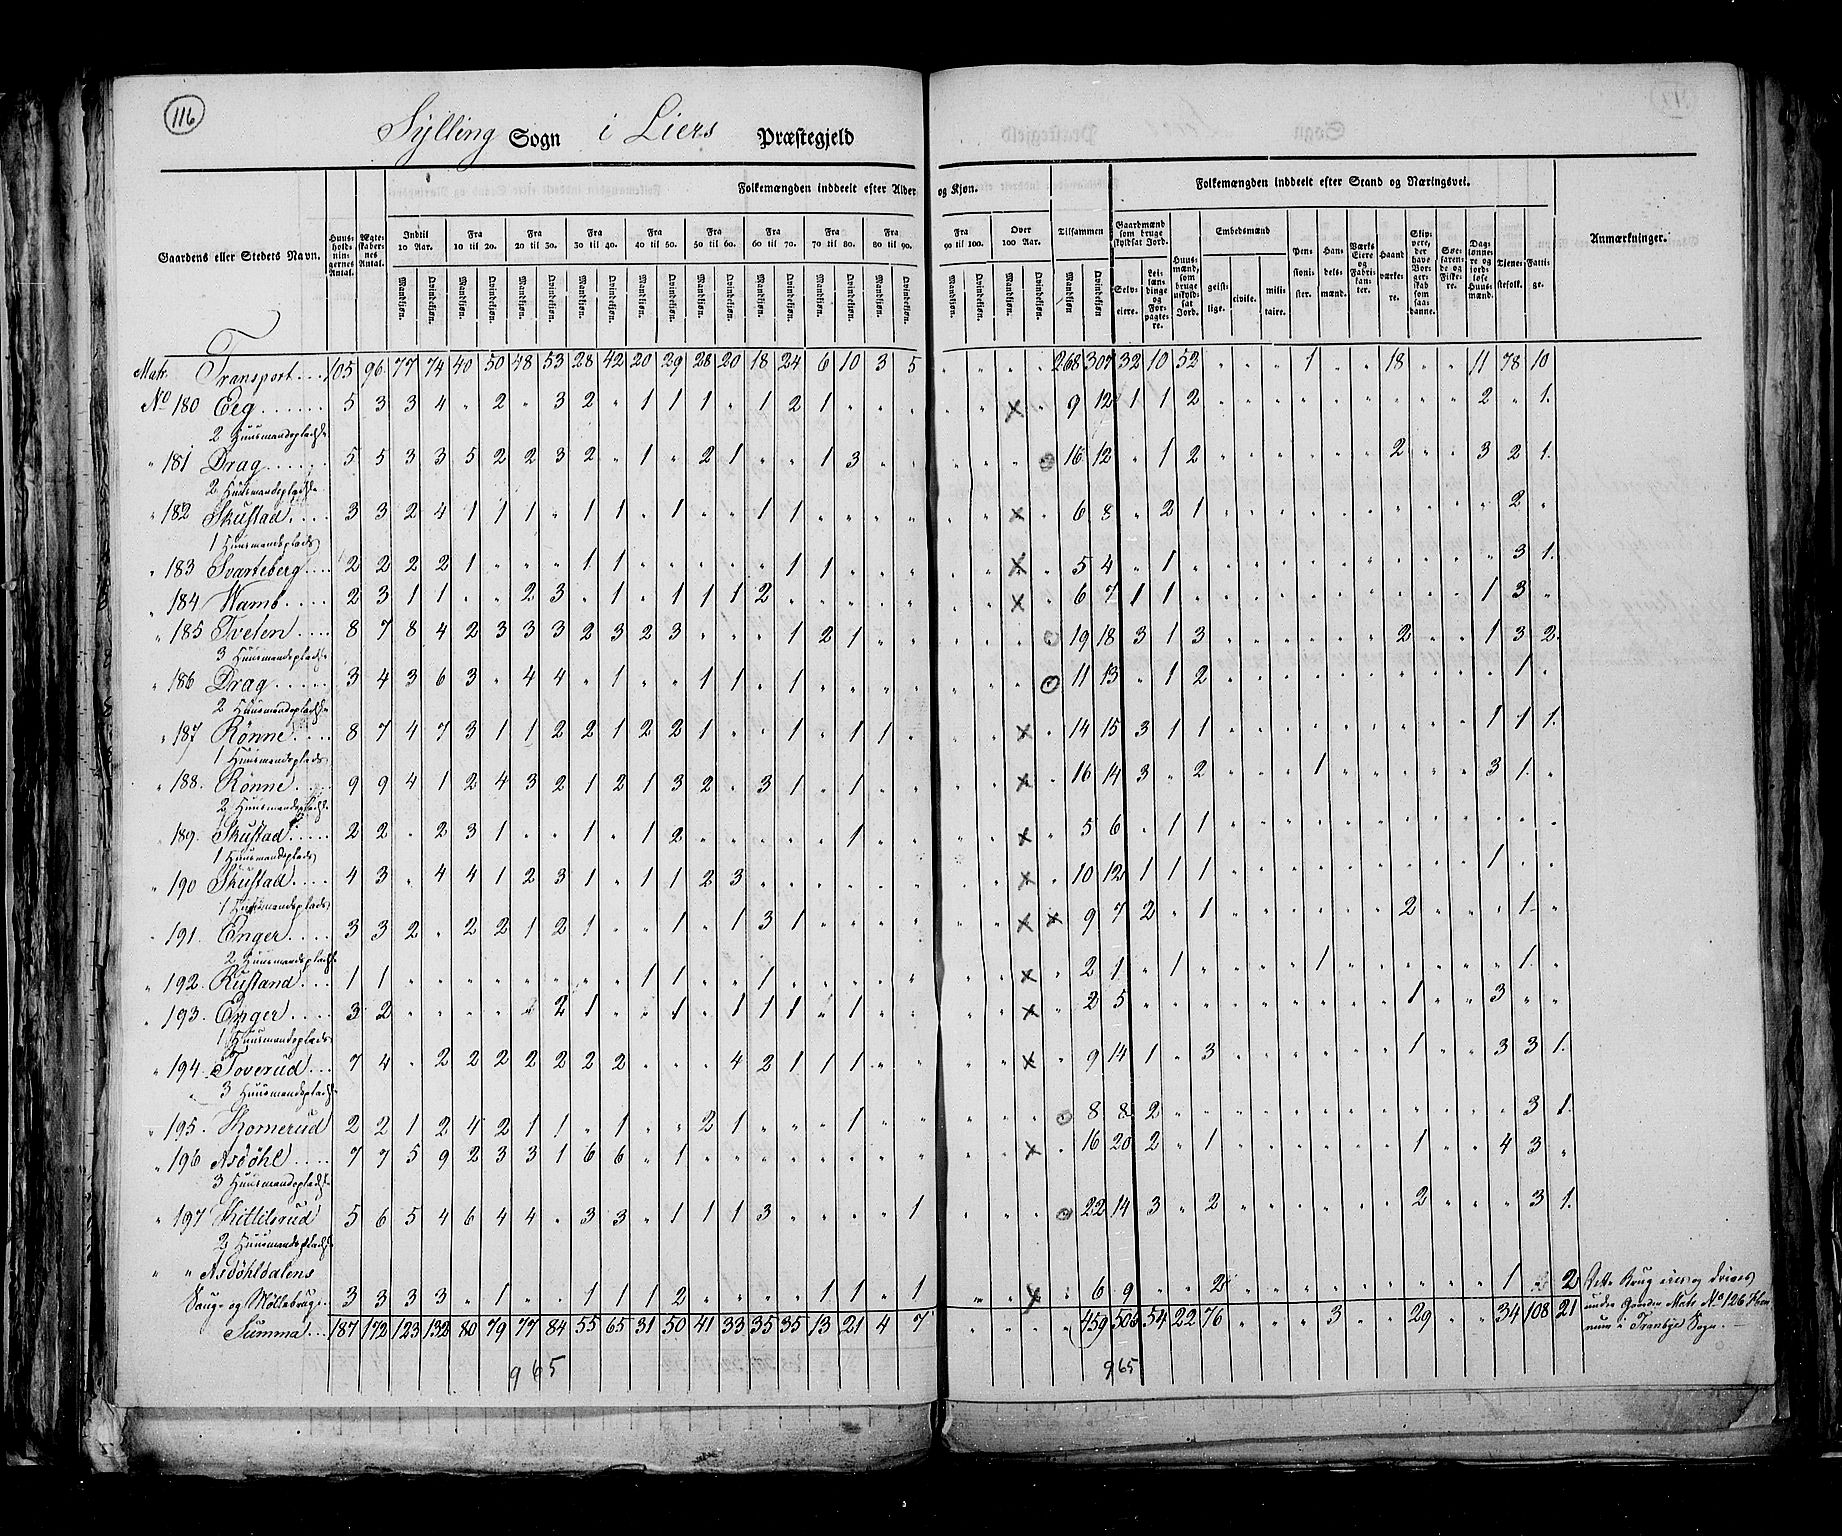 116
Sylling Sogn i Liers Præstegjeld
Gaardens eller Stedets Navn.
Huusholdningernes Antal.
Ægteskabernes Antal.
Folkemængden inddeelt efter Alder og Kjøn.
Indtil 10 Aar.
Fra 10 til 20.
Fra 20 til 30.
Fra 30 til 40.
Fra 40 til 50.
Fra 50 til 60.
Fra 60 til 70.
Fra 70 til 80.
Fra 80 til 90.
Fra 90 til 100.
Over 100 Aar.
Tilsammen
Mandkjøn. Qvindekjøn.
Folkemængden inddeelt efter Stand og Næringsvei.
Gaardmænd som bruge skyldsat Jord.
Selveiere.
Leilænd­inge og Forpagtere.
Huusmænd, som bruge uskyldsat Jord.
Embedsmænd
geistlige.
civile.
militaire.
Pensionister.
Handelsmænd.
Værks Eiere og Fabrikanter.
Haandværkere.
Slippere, der have Borgerskab som saadanne.
Søefarende og Fiskere.
Daglønnere og jordløse Huusmænd.
Tjenestefolk.
Fattige.
Anmærkninger.
Matr. Transport... 105 96 77 74 40 50 48 53 28 42 20 29 28 20 18 24 6 10 3 5 " " " " 268 307 32 10 52 " " " 1 " " 18 " " 11 78 10
No 180 Eeg...... 5 3 3 4 " 2 " 3 2 " 1 1 1 " 1 2 1 " " " " " x " 9 12 1 1 2 " " " " " " " " " 2 " 1.
2 Huusmandspladse
" 181 Drag...... 5 5 3 3 5 2 2 3 2 " 1 " 2 1 " " 1 3 " " " " " 16 12 " 1 2 " " " " " " 2 " " 3 2 1.
2 Huusmandspladse
" 182 Skustad.... 3 3 2 4 1 1 1 " 1 1 " 1 " " 1 1 " " " " " " x " 6 8 " 2 1 " " " " " " " " " " 2 "
1 Huusmandsplads
" 183 Svarteberg... 2 2 2 2 1 " " " 1 1 " " " " " 1 1 " " " " " x " 5 4 " 1 " " " " " " " " " " " 3 1.
" 184 Wamb..... 2 3 1 1 " " 2 3 " 1 " 1 1 1 2 " " " " " " " x " 6 7 1 1 " " " " " " " " " " 1 3 "
" 185 Tveten.... 8 7 8 4 2 3 3 3 2 3 2 3 " " " 1 2 1 " " " " " 19 18 3 1 3 " " " " " " 2 " " 1 3 2.
3 Huusmandspladse
" 186 Drag...... 3 4 3 6 3 " 4 4 " 1 " " 1 1 " 1 " " " " " " " 11 13 " 1 2 " " " " " " " " " " 1 "
2 Huusmandspladse
" 187 Rönne.... 8 7 4 7 3 1 1 2 2 1 2 2 1 " " 1 " 1 1 " " " x " 14 15 3 1 1 " " " " " " " " " 1 1 1.
1 Huusmandsplads
" 188. Rönne.... 9 9 4 1 2 4 3 2 1 2 1 3 2 " 3 1 " 1 " " " " x " 16 14 3 " 2 " " " " 1 " " " " 3 1. "
2 Huusmandspladse
" 189. Skustad.... 2 2 " 2 3 1 " " 1 " 1 2 " " " " " 1 " " " " x " 5 6 " 1 1 " " " " " " " " " " " "
1 Huusmandsplads
" 190 Skustad.... 4 3 " 4 4 1 2 3 1 " 1 1 2 3 " " " " " " " " x " 10 12 1 1 1 " " " " " " " " " 1 " "
1 Huusmandsplads
" 191. Enger..... 3 3 2 " 2 2 1 2 1 " " 1 " 1 3 1 " " " " " " x x 9 7 2 " 1 " " " " " " 2 " " " 1 "
2 Huusmandspladse
" 192. Rustand... 1 1 " " " " " " " " 1 1 " " 1 " " " " " " " x " 2 1 " 1 " " " " " 1 " " " " " 1. "
" 193. Enger..... 3 2 " " " " " 2 1 " " 1 " 1 1 1 " 1 " " " " x " 2 5 " " " " " " " " " 1 " " 3 " "
1 Huusmandsplads
" 194. Toverud... 7 4 " 2 2 2 2 2 2 2 " " " 4 2 1 1 1 " " " " x " 9 14 1 " 3 " " " " " " 1 " " 3 3 1.
3 Huusmandspladse
" 195. Homerud 2 2 1 2 4 2 1 1 " 1 " " 2 1 " " " 1 " " " " " 8 8 2 " " " " " " " " " " " " 3 1.
" 196 Asdöhl..... 7 7 5 9 2 3 3 1 6 6 " 1 " " " " " " " " " " x " 16 20 2 " 1 " " " " " " 1 " " 4 3 "
3 Huusmandspladse
" 197 Kittilsrud 5 6 5 4 6 4 4 " 3 3 " 1 1 1 3 " " " " 1 " " " 22 14 3 " 2 " " " " " " 2 " " " 3 1.
2 Huusmandspladse
" " Asdöhldalens
Saug- og Möllebrug.. 3 3 3 3 " 1 " " 1 1 1 2 " " " " 1 1 " 1 " " x " 6 9 " " 2 " " " " " " " " " 1 " 2
Dette Brug eies og drives under Gaarden Matr. No 126 i Tranbye Sogn.
Summa... 187 172 123 132 80 79 77 84 55 65 31 50 41 33 35 35 13 21 4 7 " " " " 459 506 54 22 76 " " " " 3 " 29 " " 34 108 21
965 965